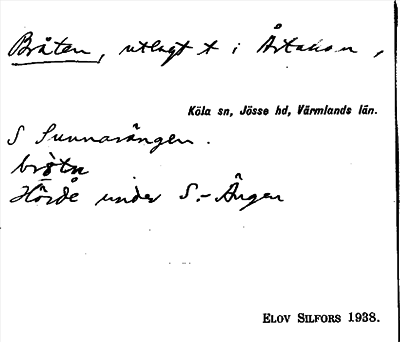 Bråten, utlagt t i Årtakan,
Köla sn, Jösse hd, Värmlands län.
S Sunnarängen.
bròtn
Hörde under S.-Ängen
ELOV SILFORS 1938.